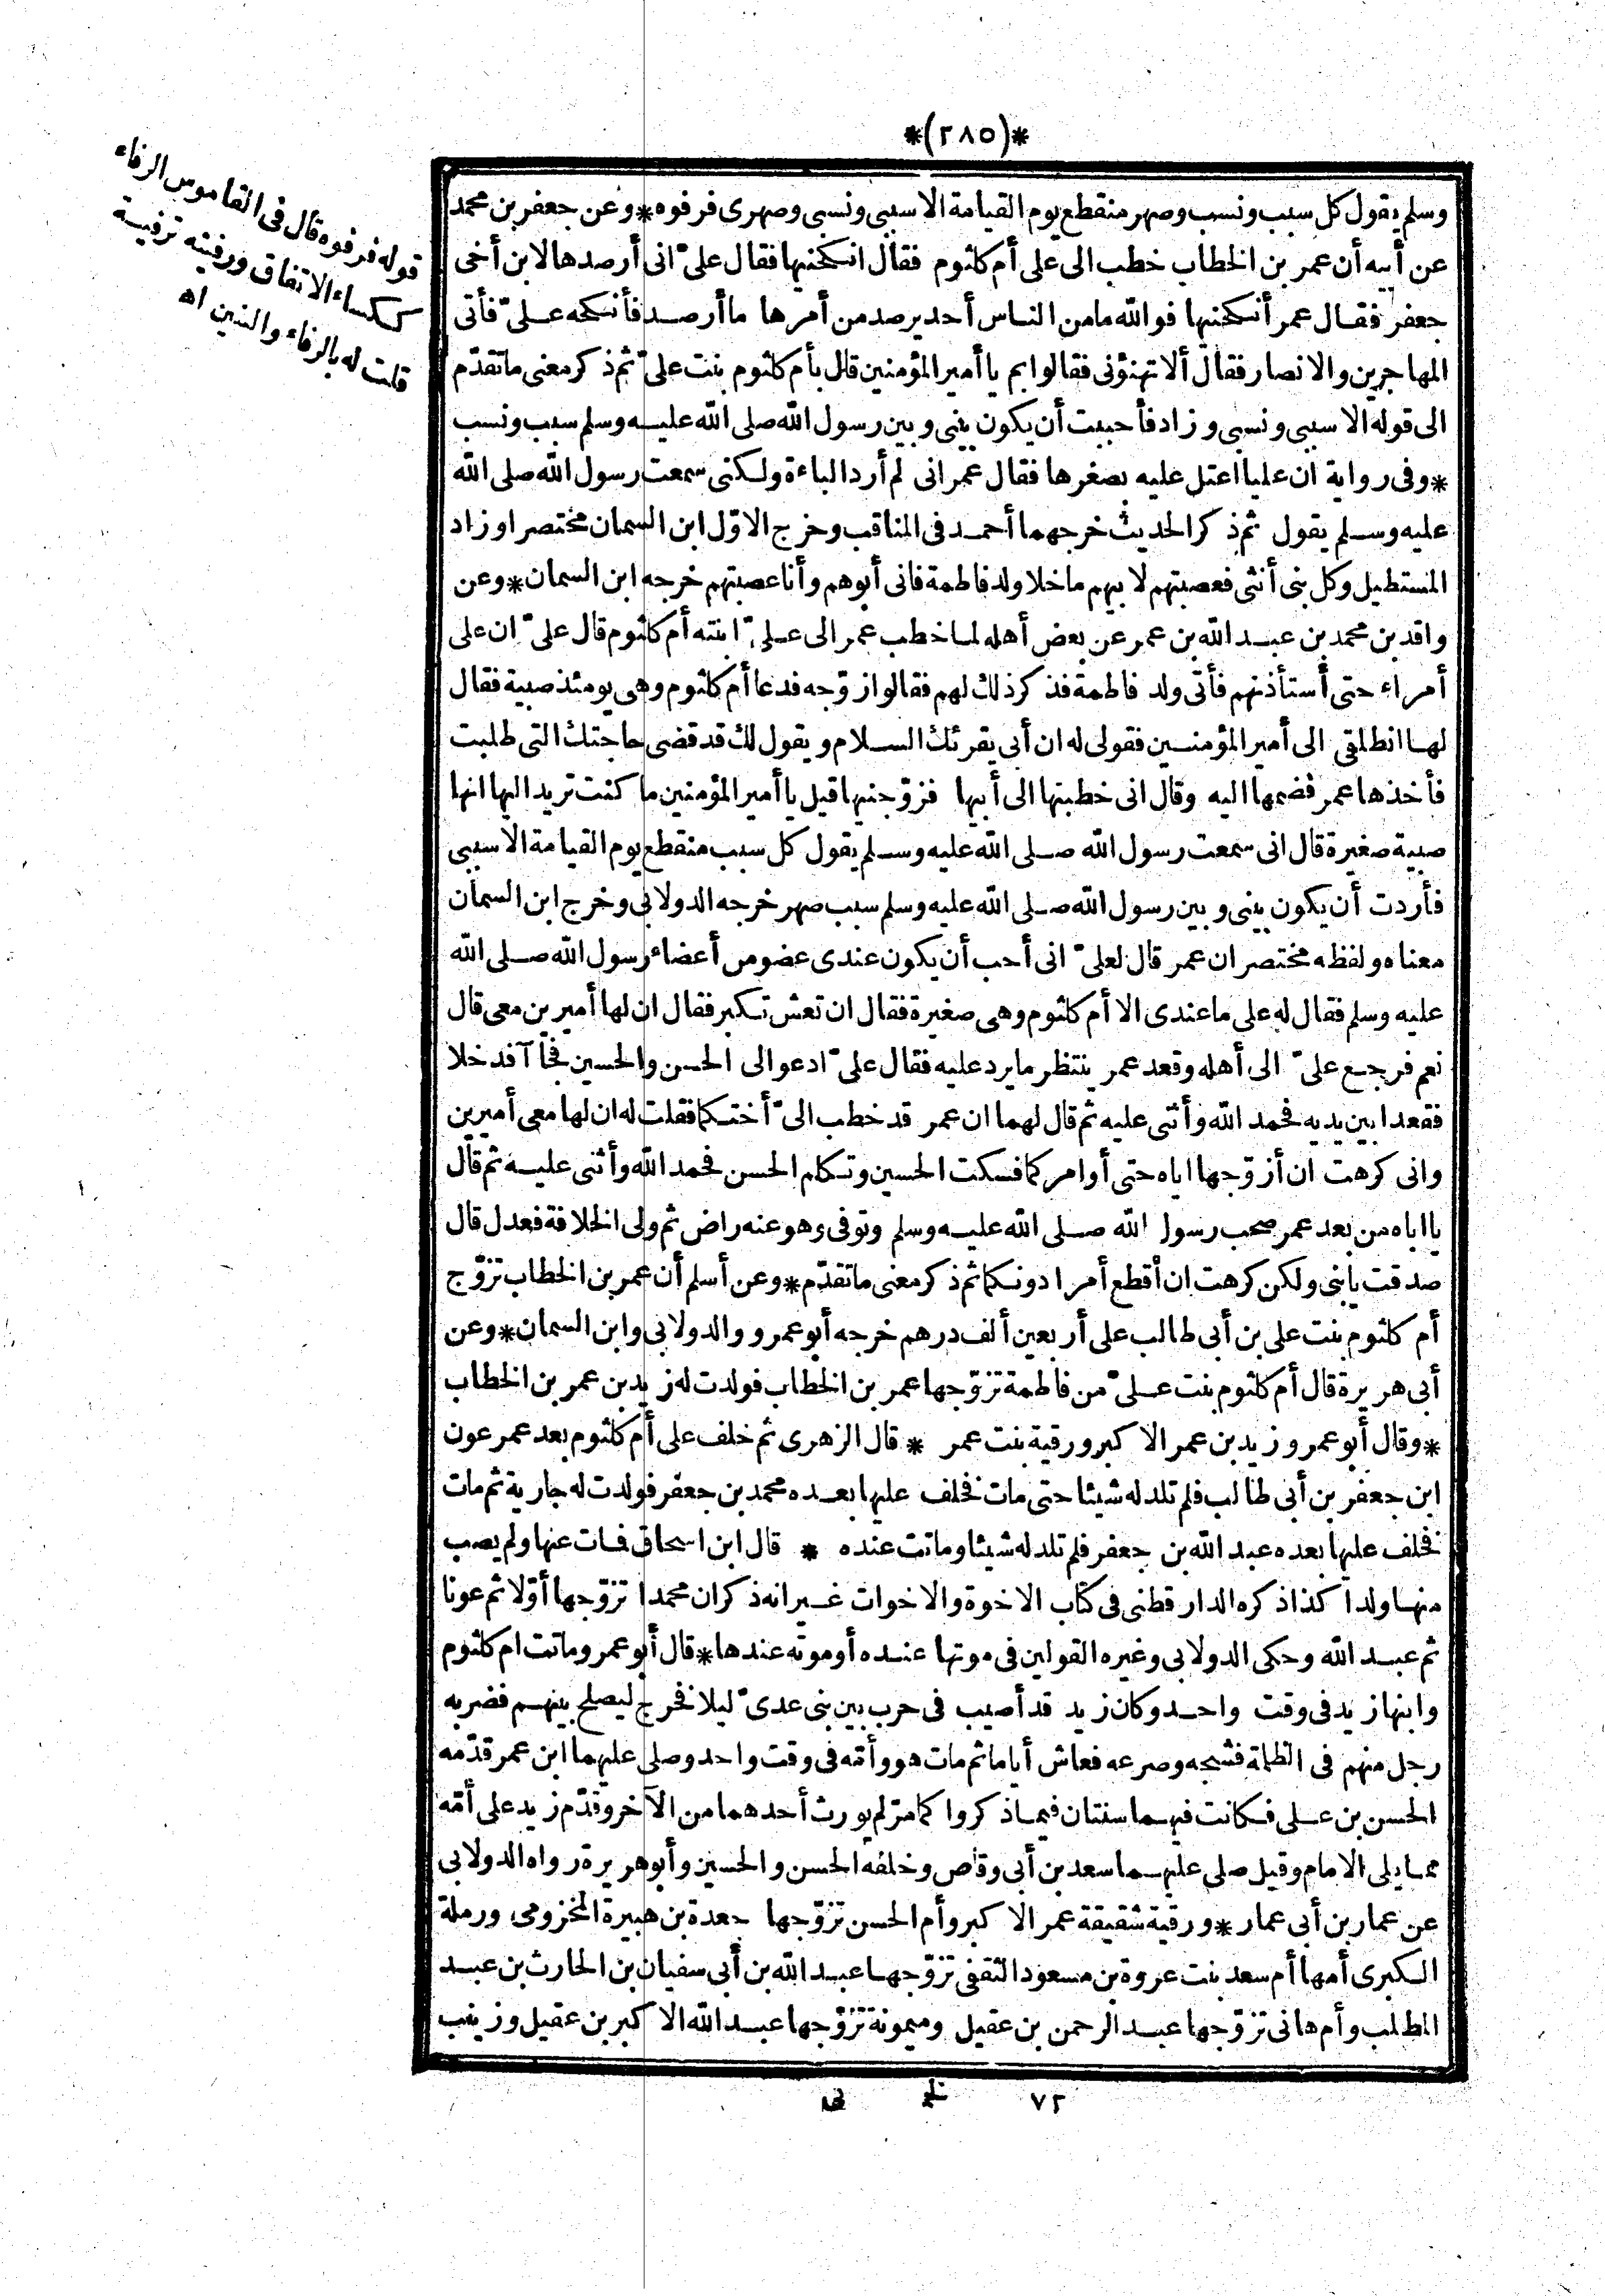 *(٢٨٥)*
وسلم يقول كل سبب ونسب وصهر منقطع يوم القيامة الا سببى ونسبى وصهرى فرفوه * وعن جعفر بن محمد
عن أبيه أن عمر بن الخطاب خطب الى على أم كلثوم فقال انكحنيها فقال علىّ انى أرصدها لابن أخى
جعفر فقال عمر أنكحنيها فو الله ما من الناس أحد يرصد من أمرها ما أرصد فأنكحه علىّ فأتى
المهاجرين والانصار فقال ألا تهنؤنى فقالوا بم يا أمير المؤمنين قال بأم كلثوم بنت علىّ ثم ذكر معنى ما تقدّم
الى قوله الا سببى ونسبى وزاد فأحببت أن يكون بينى وبين رسول الله صلى الله عليه وسلم سبب ونسب
* وفى رواية ان عليا اعتل عليه بصغرها فقال عمر انى لم أرد الباءة ولكنى سمعت رسول الله صلى الله
عليه وسلم يقول ثم ذكر الحديث خرجهما أحمد فى المناقب وخرج الاوّل ابن السمان مختصرا وزاد
المستطيل وكل بنى أنثى فعصبتهم لابيهم ما خلا ولد فاطمة فانى أبوهم وأنا عصبتهم خرجه ابن السمان * وعن
واقد بن محمد بن عبد الله بن عمر عن بعض أهله لما خطب عمر الى علىّ ابنته أم كلثوم قال علىّ ان على
أمراء حتى أستأذنهم فأتى ولد فاطمة فذكر ذلك لهم فقالوا زوّجه فدعا أم كلثوم وهى يومئذ صبية فقال
لها انطلقى الى أمير المؤمنين فقولى له ان أبى يقرئك السلام ويقول لك قد قضى حاجتك التى طلبت
فأخذها عمر فضمها اليه وقال انى خطبتها الى أبيها فزوّجنيها قيل يا أمير المؤمنين ما كنت تريد اليها انها
صبية صغيرة قال انى سمعت رسول الله صلى الله عليه وسلم يقول كل سبب منقطع يوم القيامة الا سببى
فأردت أن يكون بينى وبين رسول الله صلى الله عليه وسلم سبب صهر خرجه الدولابى وخرج ابن السمان
معناه ولفظه مختصر ان عمر قال لعلىّ انى أحب أن يكون عندى عضو من أعضاء رسول الله صلى الله
عليه وسلم فقال له على ما عندى الا أم كلثوم وهى صغيرة فقال ان تعش تكبر فقال ان لها أميرين معى قال
نعم فرجع علىّ الى أهله وقعد عمر ينتظر ما يرد عليه فقال علىّ ادعوا لى الحسن والحسين فجاآ فدخلا
فقعدا بين يديه فحمد الله وأثنى عليه ثم قال لهما ان عمر قد خطب الىّ أختكما فقلت له ان لها معى أميرين
وانى كرهت ان أزوّجها اياه حتى أوامركما فسكت الحسين وتكلم الحسن فحمد الله وأثنى عليه ثم قال
يا اباه من بعد عمر صحب رسول الله صلى الله عليه وسلم وتوفى وهو عنه راض ثم ولى الخلافة فعدل قال
صدقت يا بنى ولكن كرهت ان أقطع أمرا دونكما ثم ذكر معنى ما تقدّم * وعن أسلم أن عمر بن الخطاب تزوّج
أم كلثوم بنت على بن أبى طالب على أربعين ألف درهم خرجه أبو عمرو والدولابى وابن السمان * وعن
أبى هريرة قال أم كلثوم بنت علىّ من فاطمة تزوّجها عمر بن الخطاب فولدت له زيد بن عمر بن الخطاب
* وقال أبو عمرو زيد بن عمر الاكبر ورقية بنت عمر * قال الزهرى ثم خلف على أم كلثوم بعد عمر عون
ابن جعفر بن أبى طالب فلم تلد له شيئا حتى مات فخلف عليها بعده محمد بن جعفر فولدت له جارية ثم مات
فخلف عليها بعده عبد الله بن جعفر فلم تلد له شيئا وماتت عنده * قال ابن اسحاق فمات عنها ولم يصب
منها ولدا كذا ذكره الدارقطنى فى كتاب الاخوة والاخوات غير انه ذكر ان محمدا تزوّجها أوّلا ثم عونا
ثم عبد الله وحكى الدولابى وغيره القولين فى موتها عنده أو موته عندها * قال أبو عمر وماتت ام كلثوم
وابنها زيد فى وقت واحد وكان زيد قد أصيب فى حرب بين بنى عدىّ ليلا فخرج ليصلح بينهم فضربه
رجل منهم فى الظلمة فشجه وصرعه فعاش أياما ثم مات هو وأمّه فى وقت واحد وصلى عليهما ابن عمر قدّمه
الحسن بن على فكانت فيهما سنتان فيما ذكروا كما مرّ لم يورث أحدهما من الآخر وقدّم زيد على أمّه
مما يلى الامام وقيل صلى عليهما سعد بن أبى وقاص وخلفه الحسن والحسين وأبو هريرة رواه الدولابى
عن عمار بن أبى عمار * ورقية شقيقة عمر الاكبر وأم الحسن تزوّجها جعدة بن هبيرة المخزومى ورملة
الكبرى أمها أم سعد بنت عروة بن مسعود الثقفى تزوّجها عبد الله بن أبى سفيان بن الحارث بن عبد
المطلب وأم هانى تزوّجها عبد الرحمن بن عقيل وميمونة تزوّجها عبد الله الاكبر بن عقيل وزينب
٧٢
قوله فرفوه قال فى القاموس الرفاء
ككساء الاتفاق ورفيته ترفية
قلت له بالرفاء والبنين اه